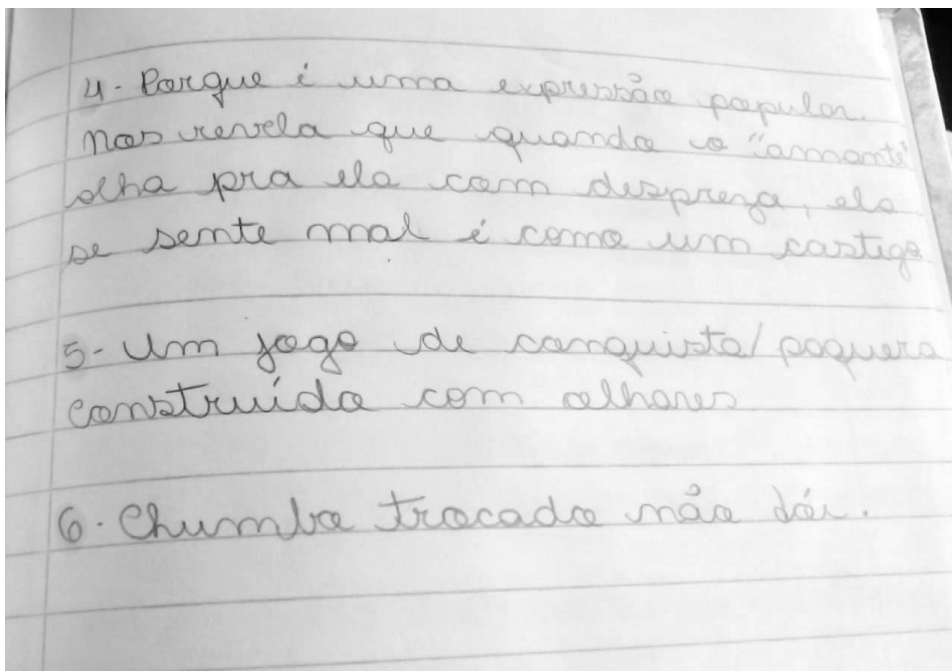 4- Porque é uma expressão popular.
Nos revela que quando o "amante"
olha pra ela com despreza, ela
se sente mal é como um castigo
5- Um jogo de conquista/paquera
construída com olhares
6. Chumbo trocado não dói.